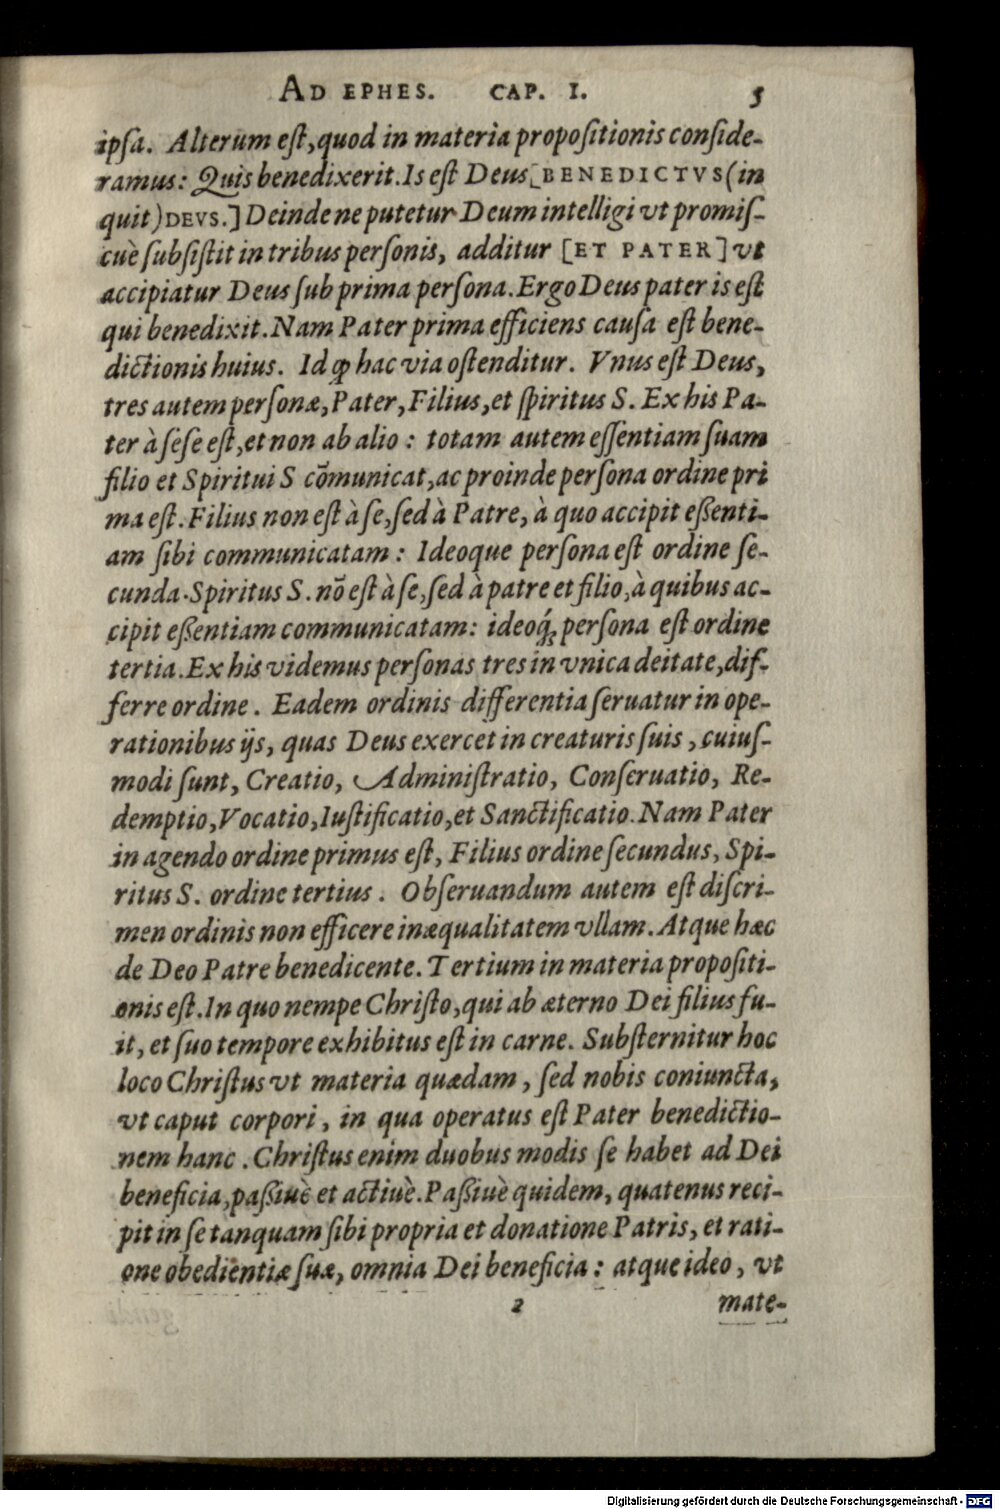 AD EPHES. CAP. I. 5
ipſa. Alterum eſt, quod in materia propoſitionis conſide-
ramus: Quis benedixerit. Is eſt Deus [BENEDICTVS (in
quit) DEVS.] Deinde ne putetur Deum intelligi vt promiſ-
cuè ſubſiſtit in tribus perſonis, additur [ET PATER] vt
accipiatur Deus ſub prima perſona. Ergo Deus pater is eſt
qui benedixit. Nam Pater prima efficiens cauſa eſt bene-
dictionis huius. Id ꝙ hac via oſtenditur. Vnus eſt Deus,
tres autem perſonæ, Pater, Filius, et ſpiritus S. Ex his Pa-
ter à ſeſe eſt, et non ab alio: totam autem eſſentiam ſuam
filio et Spiritui S cōmunicat, ac proinde perſona ordine pri
ma eſt. Filius non eſt à ſe, ſed à Patre, à quo accipit eßenti-
am ſibi communicatam: Ideoque perſona eſt ordine ſe-
cunda. Spiritus S. nō eſt à ſe, ſed à patre et filio, à quibus ac-
cipit eßentiam communicatam: ideoq́; perſona eſt ordine
tertia. Ex his videmus perſonas tres in vnica deitate, dif-
ferre ordine. Eadem ordinis differentia ſeruatur in ope-
rationibus ijs, quas Deus exercet in creaturis ſuis, cuiuſ-
modi ſunt, Creatio, Adminiſtratio, Conſeruatio, Re-
demptio, Vocatio, Iuſtificatio, et Sanctificatio. Nam Pater
in agendo ordine primus eſt, Filius ordine ſecundus, Spi-
ritus S. ordine tertius. Obſeruandum autem eſt diſcri-
men ordinis non efficere inæqualitatem vllam. Atque hæc
de Deo Patre benedicente. Tertium in materia propoſiti-
onis eſt. In quo nempe Chriſto, qui ab æterno Dei filius fu-
it, et ſuo tempore exhibitus eſt in carne. Subſternitur hoc
loco Chriſtus vt materia quædam, ſed nobis coniuncta,
vt caput corpori, in qua operatus eſt Pater benedictio-
nem hanc. Chriſtus enim duobus modis ſe habet ad Dei
beneficia, paßiuè et actiuè. Paßiuè quidem, quatenus reci-
pit in ſe tanquam ſibi propria et donatione Patris, et rati-
one obedientiæ ſuæ, omnia Dei beneficia: atque ideo, vt
2 mate-
Digitalisierung gefördert durch die Deutsche Forschungsgemeinschaft - DFG